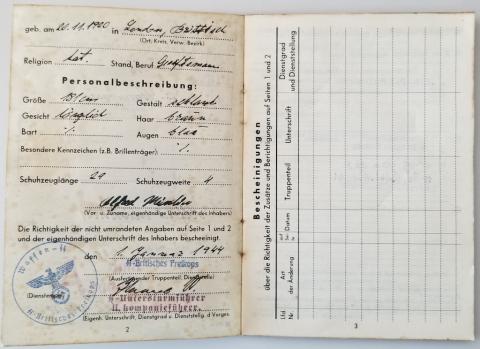 geb. am 20. 11. 1920 in London, Brittisch
(Ort, Kreis, Verw.-Bezirk)
Religion Stand, Beruf
Personalbeschreibung:
Größe cm Gestalt schlank
Gesicht länglich Haar braun
Bart ./. Augen blau
Besondere Kennzeichen (z.B. Brillenträger): ./.
Schuhzeuglänge 29 Schuhzeugweite 4
Alfred
(Vor- u. Zuname, eigenhändige Unterschrift des Inhabers)
Die Richtigkeit der nicht umrandeten Angaben auf Seite 1 und 2
und der eigenhändigen Unterschrift des Inhabers bescheinigt.
den 1. Januar 1944
Waffen-SS
SS-Britisches Freikops
SS-Britisches Freikops
(Ausfertigender Truppenteil, Dienststelle)
(Dienststempel)
SS-Untersturmführer
U. Kompanieführer.
(Eigenh. Unterschrift, Dienstgrad u. Dienststellg. d. Vorges.)
2
Bescheinigungen
über die Richtigkeit der Zusätze und Berichtigungen auf Seiten 1 und 2
Lfd. Nr.
Art der Änderung
Datum
Truppenteil
Unterschrift
Dienstgrad und Dienststellung
3